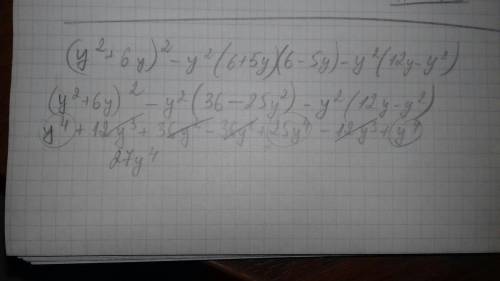 (y²+6y)²-y²(6+5y)(6-5y)-y²(12y-y²)
(y²+6y)²-y²(36-25y²)-y²(12y-y²)
y⁴+12y³+36y²-36y²+25y⁴-12y³+y⁴
27y⁴